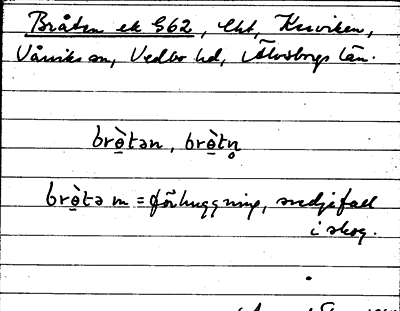 Bråten ek 962, lht, Kesviken,
Vårviks sn, Vedbo hd, Älvsborgs län.
bròtən, bròtn̥
bròtə m = förhuggning, svedjefall
i skog.